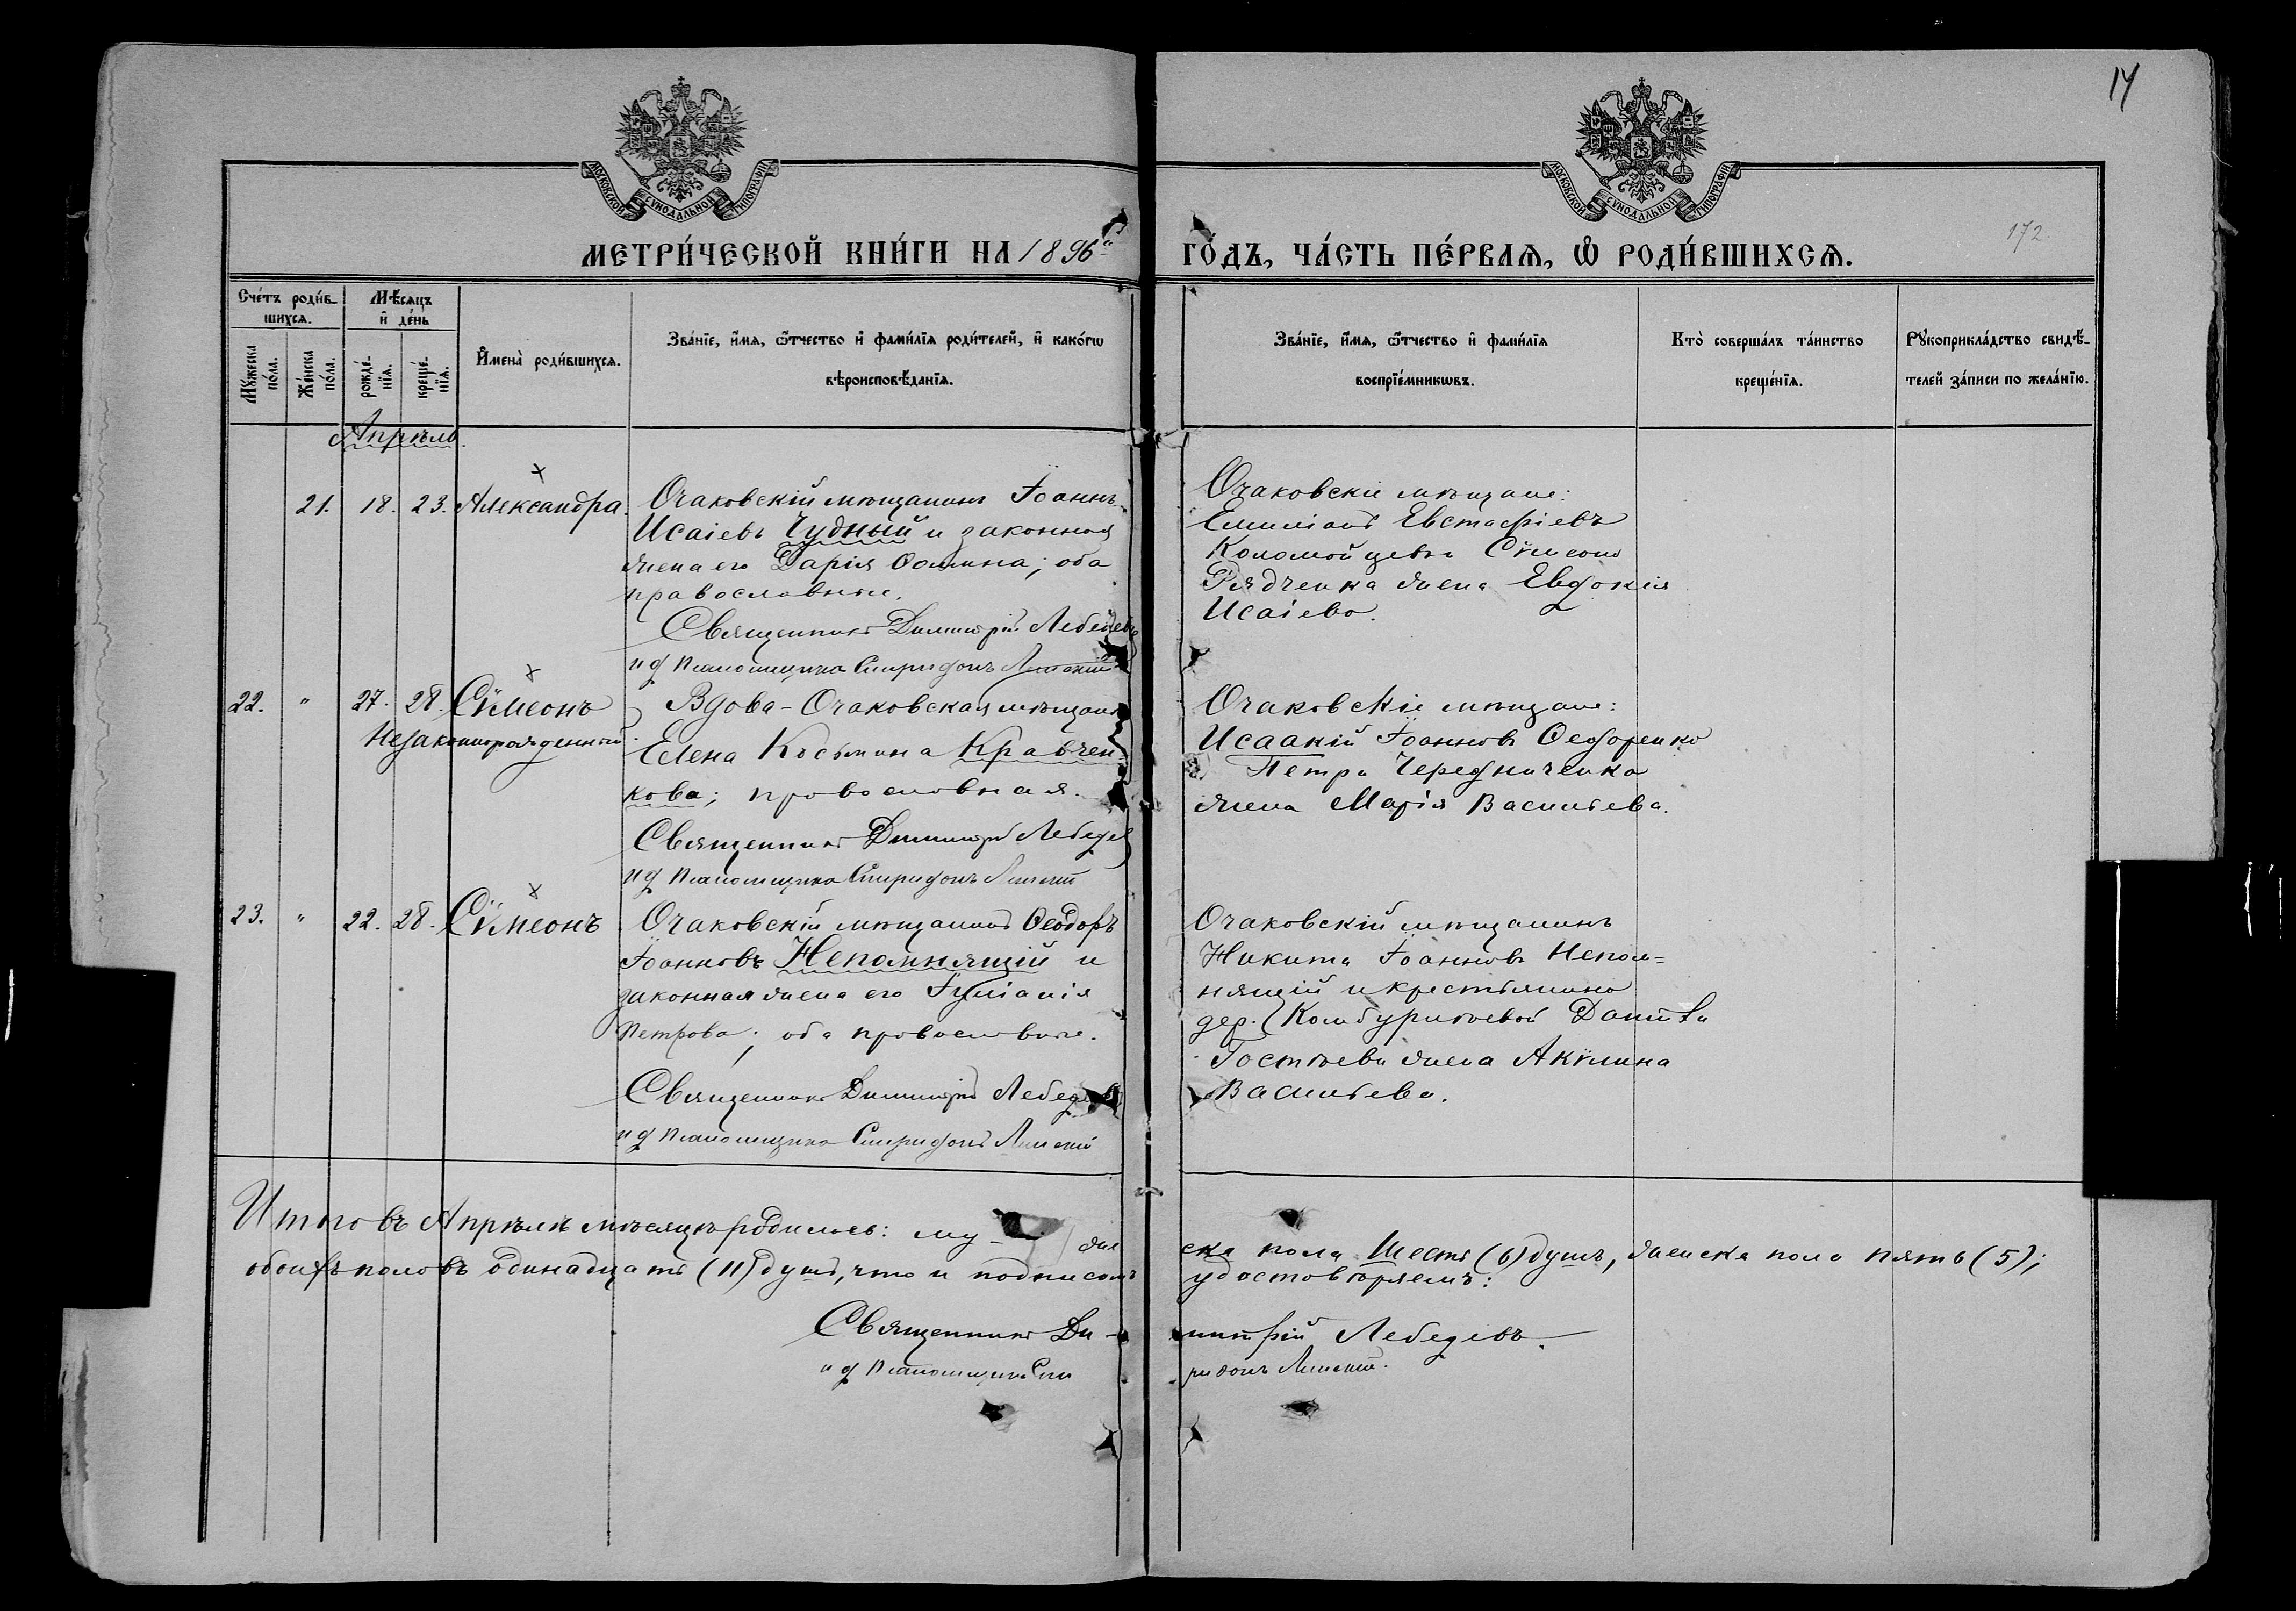 14
МОСКОВСКОЙ СѴНОДАЛЬНОЙ ТИПОГРАФІИ
МОСКОВСКОЙ СѴНОДАЛЬНОЙ ТИПОГРАФІИ
172.
МЕТРИ́ЧЕСКОЙ КНИ́ГИ НА 1896й
ГО́ДЪ, ЧА́СТЬ ПЕ́РВАѦ, Ѡ҆ РОДИ́ВШИХСѦ.
Сче́тъ роди́в-
шихсѧ.
Мꙋ́жеска по́ла.
Же́нска по́ла.
Мѣ́сѧцъ
и҆ де́нь
рожде́-
нїѧ.
креще́-
нїѧ.
И҆мена̀ роди́вшихсѧ.
Зва́нїе, и҆́мѧ, ѻ҆́тчество и҆ фами́лїѧ роди́телей, и҆ како́гѡ
вѣроисповѣ́данїѧ.
Зва́нїе, и҆́мѧ, ѻ҆́тчество и҆ фами́лїѧ
воспрїе́мникѡвъ.
Кто̀ соверша́лъ та́инство
креще́нїѧ.
Рꙋкоприкла́дство свидѣ́-
телей за́писи по жела́нїю.
Апрѣль.
21. 18. 23. Александра.
Очаковскій мѣщанинъ Іоаннъ
Исаіевъ Чудный и законная
жена его Дарія Ѳомина; оба
православные.
Священникъ Димитрій Лебедевъ
и д псаломщика Спиридонъ
Очаковскіе мѣщане:
Емиліанъ Евстафіевъ
Коломойцевъ Сѵмеона
Рядченка жена Евдокія
Исаіева.
22. " 27. 28. Сѵмеонъ
Незаконнорожденный.
Вдова - Очаковская мѣщанка
Елена Косьмина Кравчен-
кова; православная.
Священникъ Димитрій Лебедев
и д псаломщика Спиридонъ
Очаковскіе мѣщане:
Исаакій Іоанновъ Ѳеодоренко
Петра Чередниченка
жена Марія Васильева.
23. " 22. 28. Сѵмеонъ
Очаковскій мѣщанинъ Ѳеодоръ
Іоанновъ Непомнящій и
законная жена его Іуліанія
Петрова; оба православные.
Священникъ Димитрій Лебедевъ
и д псаломщика Спиридонъ
Очаковскій мѣщанинъ
Никита Іоанновъ Непом=
нящій и крестьянина
дер. Даніила
жена Акѵлина
Васильева.
Итого въ Апрѣлѣ мѣсяцѣ родилось: му-
ска пола Шесть (6) душъ, женска пола пять (5);
обоихъ половъ одинадцать (11) душъ, что и подписомъ
удостовѣряемъ:
Священникъ Ди-
митрій Лебедевъ.
и д псаломщика Спи
ридонъ